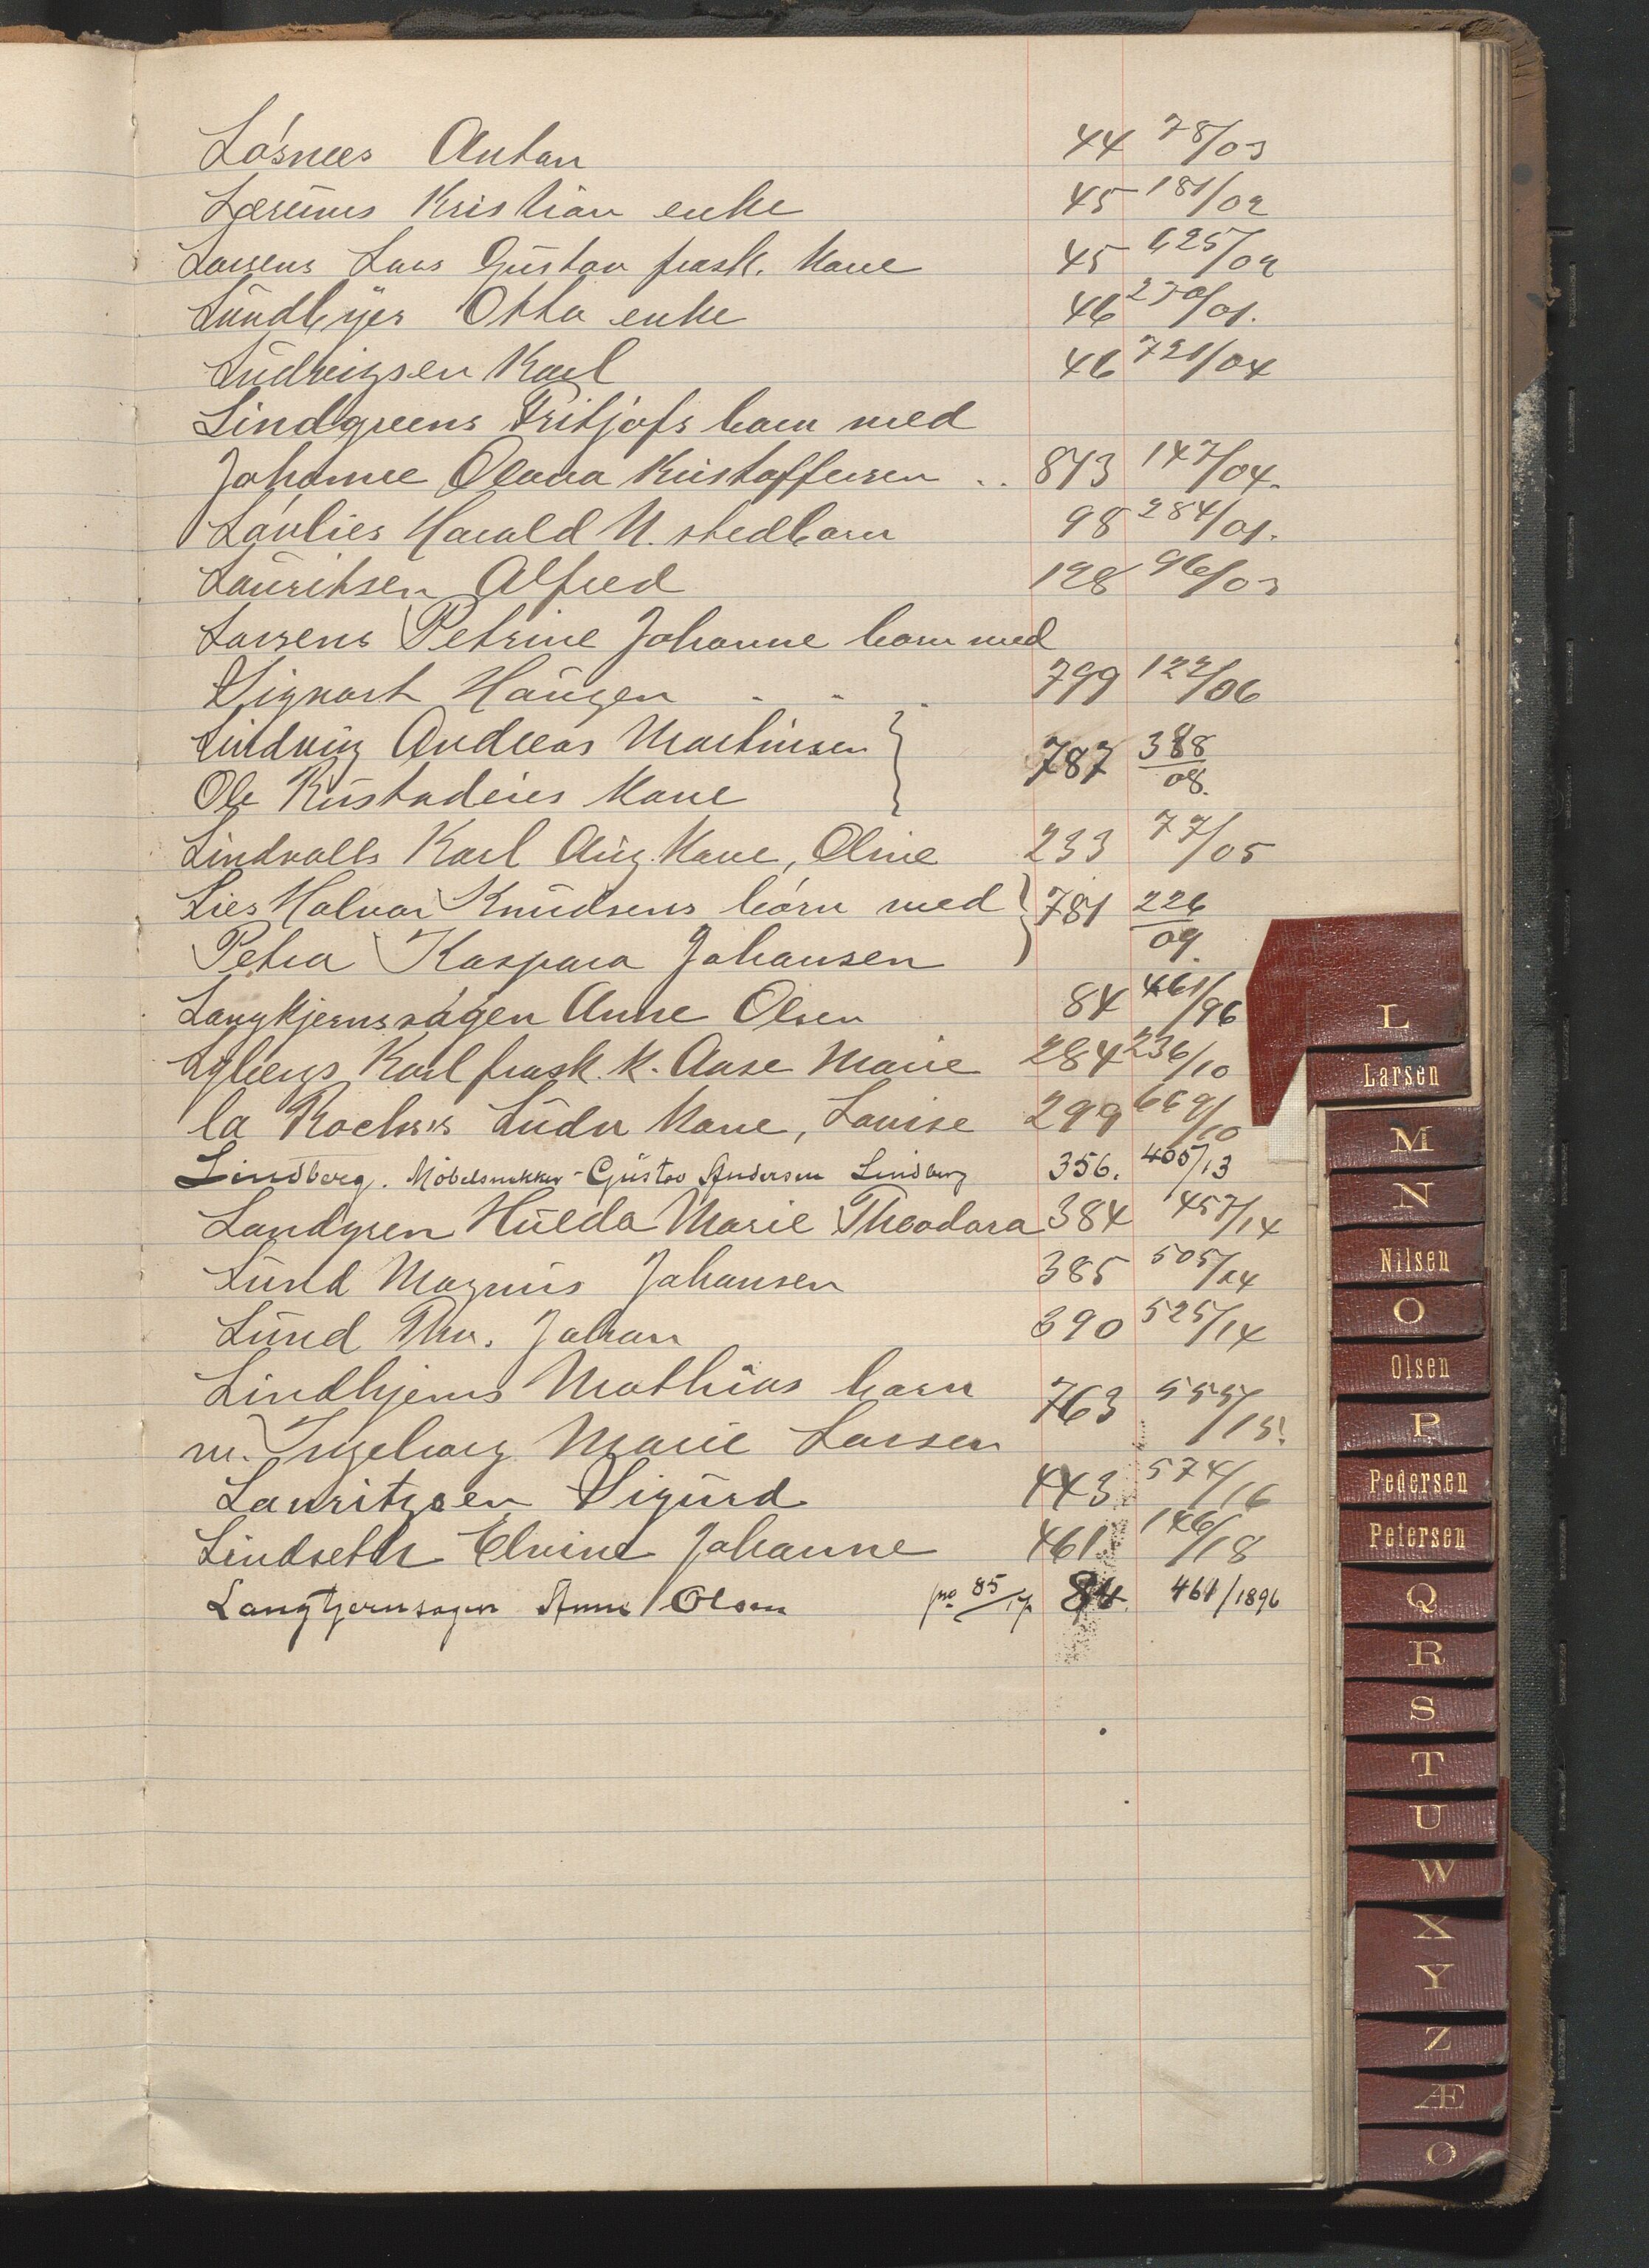 Løsnæs Anton 44 78/03
Lærums Kristian enke 45 181/02
Larsens Lars Gustav frask. Kone 45 625/02
Lundbyes Otto enke 46 230/01.
Ludvigsen Karl 46 721/04
Lindgreens Fritjofs barn med
Johanne Olava Kristoffersen .. 873 147/04.
Løvlies Harald N. stedbarn 98 284/01.
Lauritsen Alfred 128 96/03
Larsens Petrine Johanne barn med
Signart Haugen 799 122/06
Lindvig Andreas Martinsen 787 388/08.
Ole Kustadeies Kone
Lindvalls Karl Aug. Kone, Oline 233 77/05
Lies Halvor Knudsens børn med 781 226/09.
Petra Kaspara Johansen
Langkjernsagen Anne Olsen 84 461/96
Lybergs Karl frask. k. Aase Marie 284 236/10
la Rochs Ludv Kone, Lovise 299 669/10
Lindberg. Møbelsnekker - Gustav Andersen Lindberg 356. 405/13
Landgren Hulda Marie Theodora 384 457/14
Lund Magnus Johansen 385 505/14
Lund Thv. Johan 390 525/14
Lindhjems Mathias barn 763 555/15.
m. Ingeborg Marie Larsen
Lauritzsen Sigurd 443 574/16
Lindseth Elvine Johanne 461 146/18
Langtjernsagen Anne Olsen 84. 461/1896
L
Larsen
M
N
Nilsen
O
Olsen
P
Pedersen
Petersen
Q
R
S
T
U
W
X
Y
Z
Æ
Ø